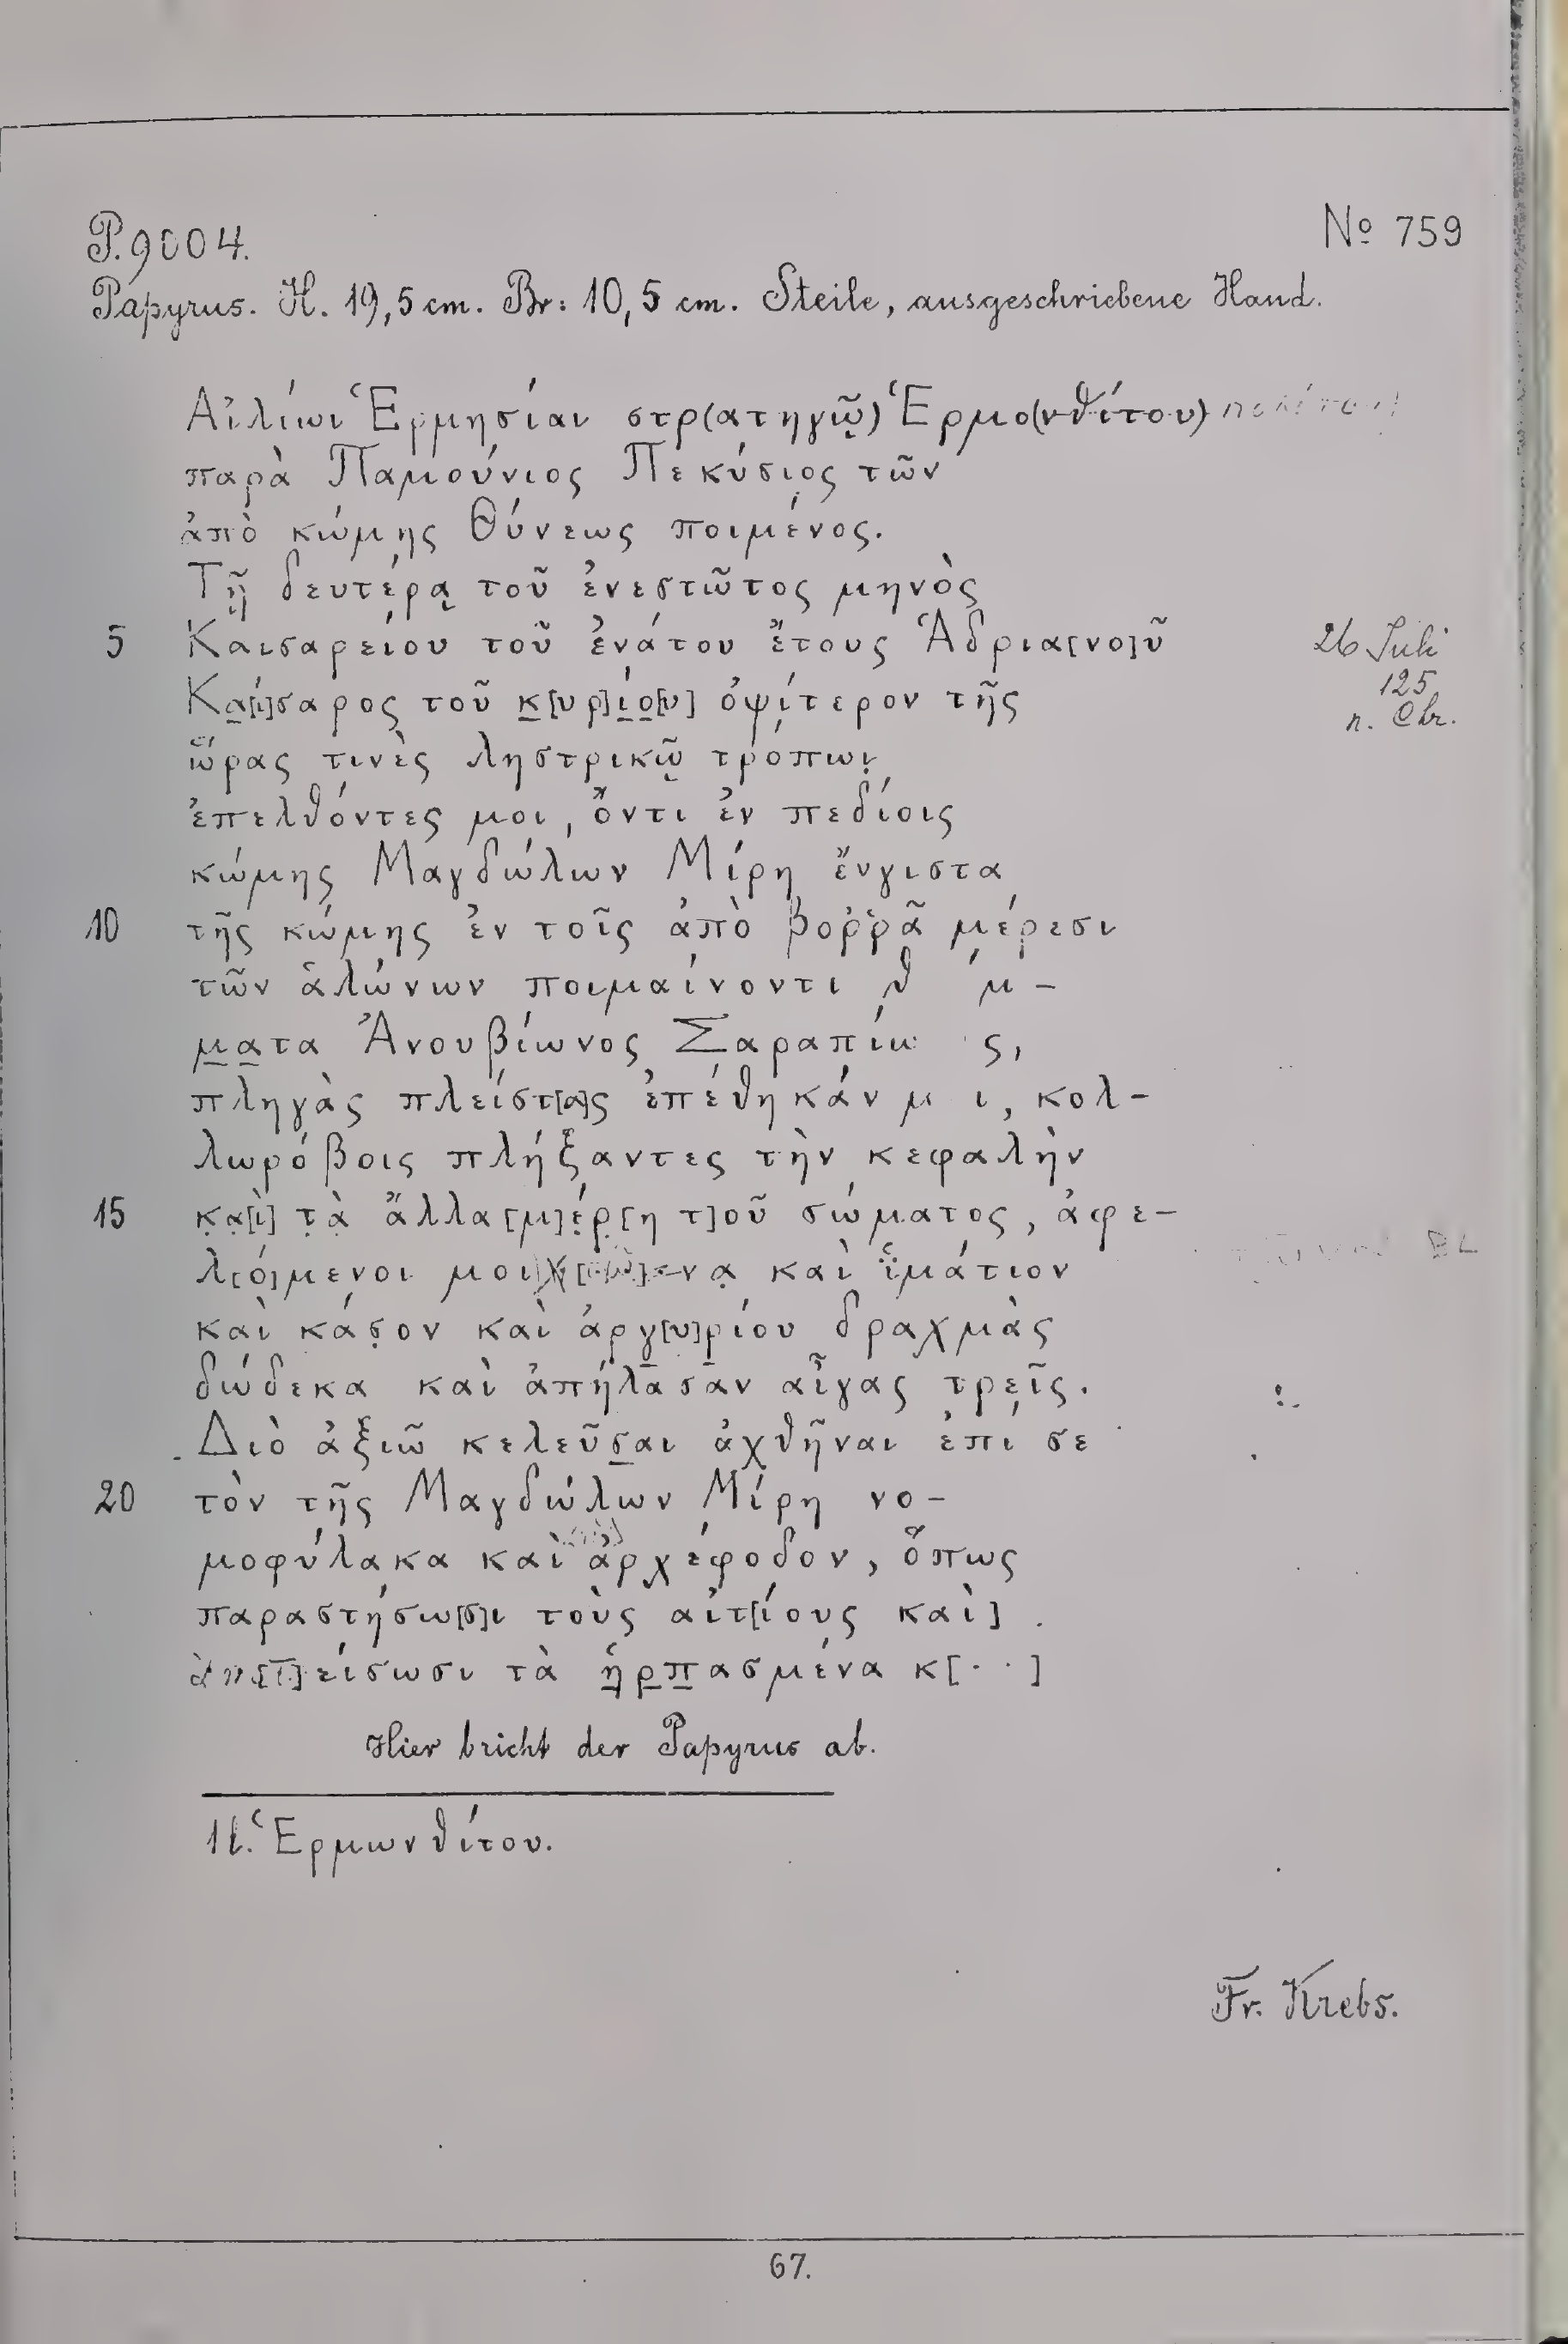 P. 9004.
No 759
Papyrus. H. 19,5 cm. Br: 10,5 cm. Steile, ausgeschriebene Hand.
Αἰλίωι Ἑρμησίαι στρ(ατηγῷ) Ἑρμο(νθίτου)
παρὰ Παμούνιος Πεκύσιος τῶν
ἀπὸ κώμης Θύνεως ποιμένος.
Τῇ δευτέρᾳ τοῦ ἐνεστῶτος μηνὸς
5 Καισαρείου τοῦ ἐνάτου ἔτους Ἁδρια[νο]ῦ
26 Juli
125
n. Chr.
Κα̣[ί]σαρος τοῦ κ̣[υρ]ί̣ο̣[υ] ὀψίτερον τῆς
ὥρας τινὲς ληστρικῷ τρόπωι
ἐπελθόντες μοι, ὄντι ἐν πεδίοις
κώμης Μαγδώλων Μίρη ἔνγιστα
10 τῆς κώμης ἐν τοῖς ἀπὸ βοῤῥᾶ μέρεσι
τῶν ἁλώνων ποιμαίνοντι
μ̣α̣τα Ἀνουβίωνος
πληγὰς πλείστ[α]ς ἐπέθηκάν κολ-
λωρόβοις πλήξαντες τὴν κεφαλὴν
15 κ̣α̣[ὶ] τ̣ὰ̣ ἄλλα [μ]έ̣ρ̣[η τ]οῦ σώματος, ἀφε-
λ[ό]μενοι μοι καὶ ἱμάτιον
καὶ κάσ̣ον καὶ ἀργ[υ]ρίου δραχμὰς
δώδεκα καὶ ἀπήλασαν αἶγας τρεῖς.
Διὸ ἀξιῶ κελεῦσ̣αι ἀχθῆναι ἐπὶ σε
20 τὸν τῆς Μαγδώλων Μίρη νο-
μοφύλακα καὶ ἀρχέφοδον, ὅπως
παραστήσω[σ]ι τοὺς αἰτ[ίους καὶ]
τὰ ἡ̣ρ̣π̣ασμένα κ[· ·]
Hier bricht der Papyrus ab.
1 l. Ἑρμωνθίτου.
Fr. Krebs.
67.